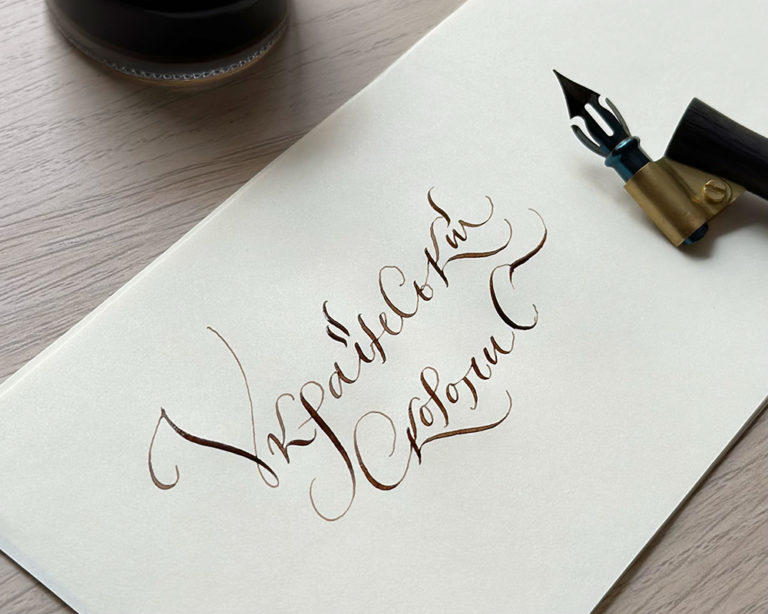 Український
Скоропис